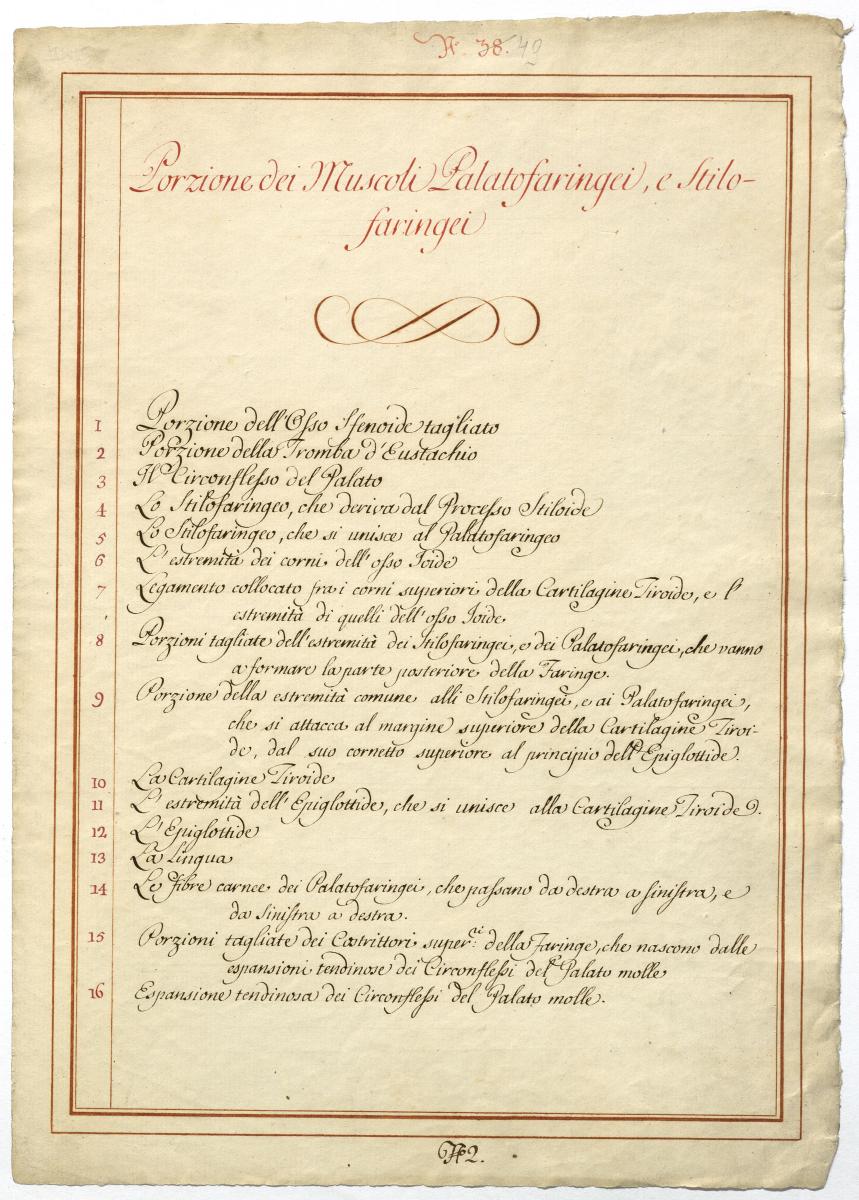 N. 38. 49
Porzione dei Muscoli Palatofaringei, e Stilo-
faringei
1 Porzione dell'Osso Sfenoide tagliato
2 Porzione della Tromba d'Eustachio
3 Il Circonflesso del Palato
4 Lo Stilofaringeo, che deriva dal Processo Stiloide
5 Lo Stilofaringeo, che si unisce al Palatofaringeo
6 L'estremità dei corni dell'osso Ioide
7 Legamento collocato fra i corni superiori della Cartilagine Tiroide, e l'
estremità di quelli dell'osso Ioide
8 Porzioni tagliate dell'estremità dei Stilofaringei, e dei Palatofaringei, che vanno
a formare la parte posteriore della Faringe.
9 Porzione della estremità comune alli Stilofaringei, e ai Palatofaringei,
che si attacca al margine superiore della Cartilagine Tiroi-
de, dal suo cornetto superiore al principio dell'Epiglottide.
10 La Cartilagine Tiroide
11 L'estremità dell'Epiglottide, che si unisce alla Cartilagine Tiroide.
12 L'Epiglottide
13 La Lingua
14 Le fibre carnee dei Palatofaringei, che passano da destra a sinistra, e
da sinistra a destra.
15 Porzioni tagliate dei Costrittori super.ri della Faringe, che nascono dalle
espansioni tendinose dei Circonflessi del Palato molle
16 Espansione tendinosa dei Circonflessi del Palato molle.
N 2.